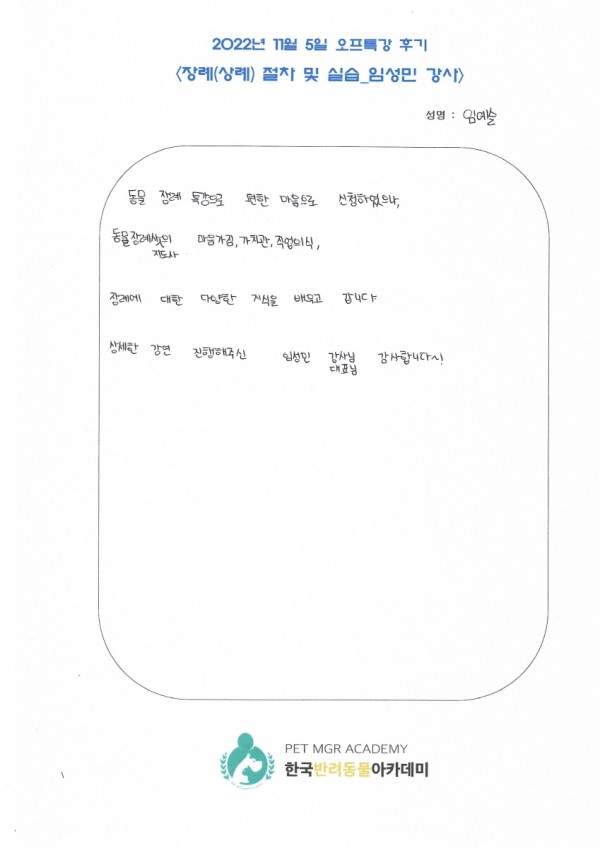 2022년 11월 5일 오프특강 후기
<장례(상례) 절차 및 실습_임성민 강사>
성명 : 임예슬
동물 장례 특강으로 편한 마음으로 신청하였으나,
동물장례의 마음가짐, 가치관, 직업의식,
지도사
장례에 대한 다양한 지식을 배우고 갑니다
상세한 강연 진행해주신 임성민 강사님 감사합니다~!
대표님
PET MGR ACADEMY
한국반려동물아카데미